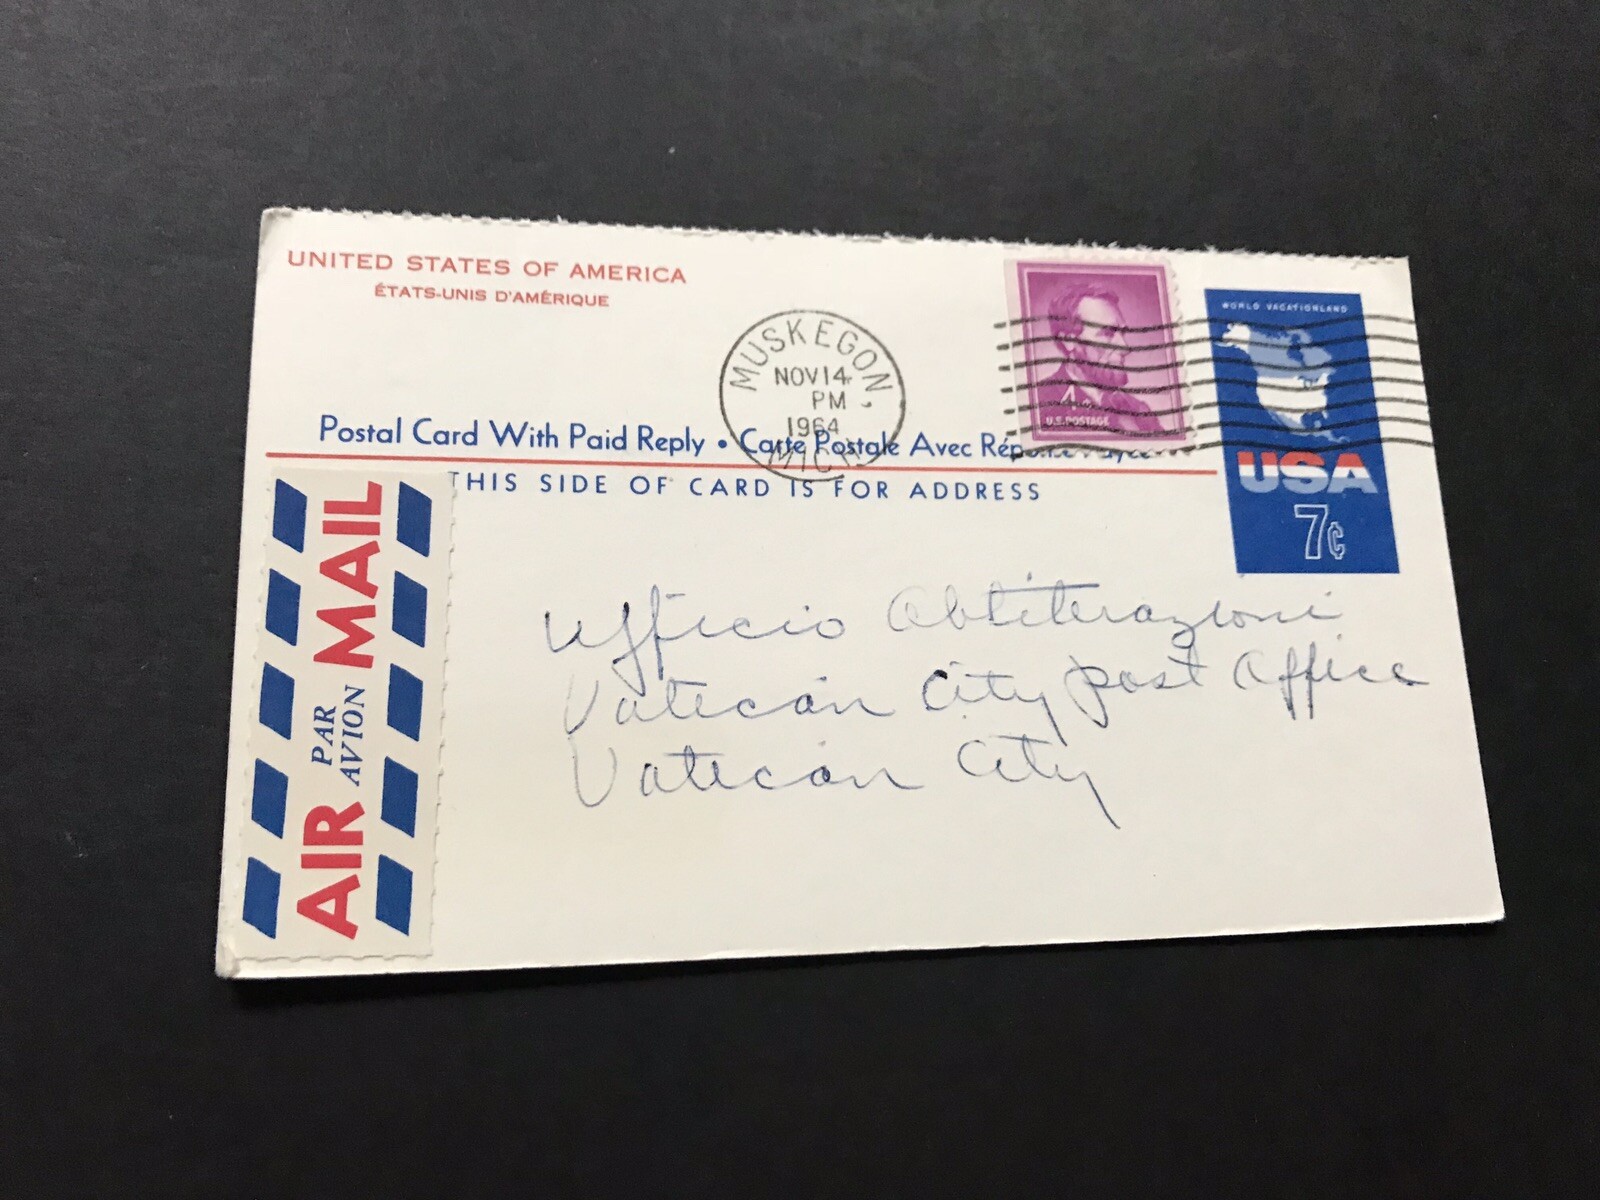 UNITED STATES OF AMERICA
ÉTATS-UNIS D'AMÉRIQUE
MUSKEGON,
NOV 14
PM
1964
MICH
4
U.S. POSTAGE
WORLD VACATIONLAND
USA
7¢
Postal Card With Paid Reply • Carte Postale Avec
THIS SIDE OF CARD IS FOR ADDRESS
AIR MAIL
PAR
AVION
Ufficio Obliterazioni
Vatican City Post Office
Vatican City